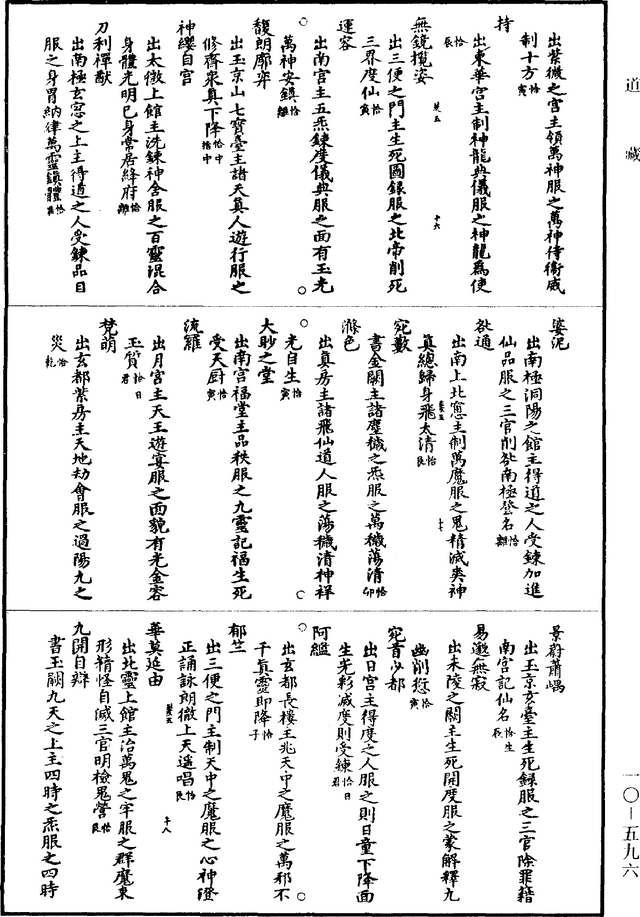 道藏
出紫微之宮主領萬神服之萬神侍衛威
制十方恰寅
持
出東華宮主制神龍典儀服之神龍為使
恰辰
無鏡攬姿
出三便之門主生死圖錄服之北帝削死
三界度仙恰寅
運容
出南宮主五炁鍊度儀典服之面有玉光
萬神安鎮恰離
馥朗廓弈
出玉京山七寶臺主諸天真人遊行服之
修齋眾真下降恰中
神纓自宮
出太微上館主洗鍊神舍服之百靈混合
身體光明己身常居絳府恰離
刀利禪猷
出南極玄窓之上主得道之人受鍊品目
服之身冑納律萬靈鎮體恰離
婆泥
出南極洞陽之館主得道之人受鍊加進
仙品服之三官削㰤南極登名恰離
㰤通
出南上北窓主制萬魔服之鬼精滅爽神
真總歸身飛太清恰艮
宛藪
書金闕主諸塵穢之炁服之萬穢蕩清恰卯
滌色
出真房主諸飛仙道人服之蕩穢清神祥
光自生恰寅
大眇之堂
出南宮福堂主品秩服之九靈記福生死
受天廚恰寅
流羅
出月宮主天王遊宴服之面貌有光金容
玉質恰日君
梵萌
出玄都紫房主天地劫會服之過陽九之
災恰乾
景蔚蕭嵎
出玉京亥臺主生死錄服之三官除罪籍
南宮記仙名恰生辰
易邈無寂
出朱陵之關主生死開度服之蒙解釋九
幽削愆恰寅
宛首少都
出日宮主得度之人服之則日童下降面
生光彩滅度則受鍊恰日君
阿艦
出玄都長樓主兆天中之魔服之萬邪不
干真靈即降恰子
郁竺
出三便之門主制天中之魔服之心神澄
正誦詠朗徹上天遥唱恰艮
華莫延由
出北靈上館主治萬鬼之牢服之群魔束
形精怪自滅三官明檢鬼營恰艮
九開自辯
書玉闕九天之上主四時之炁服之四時
一〇—五九六